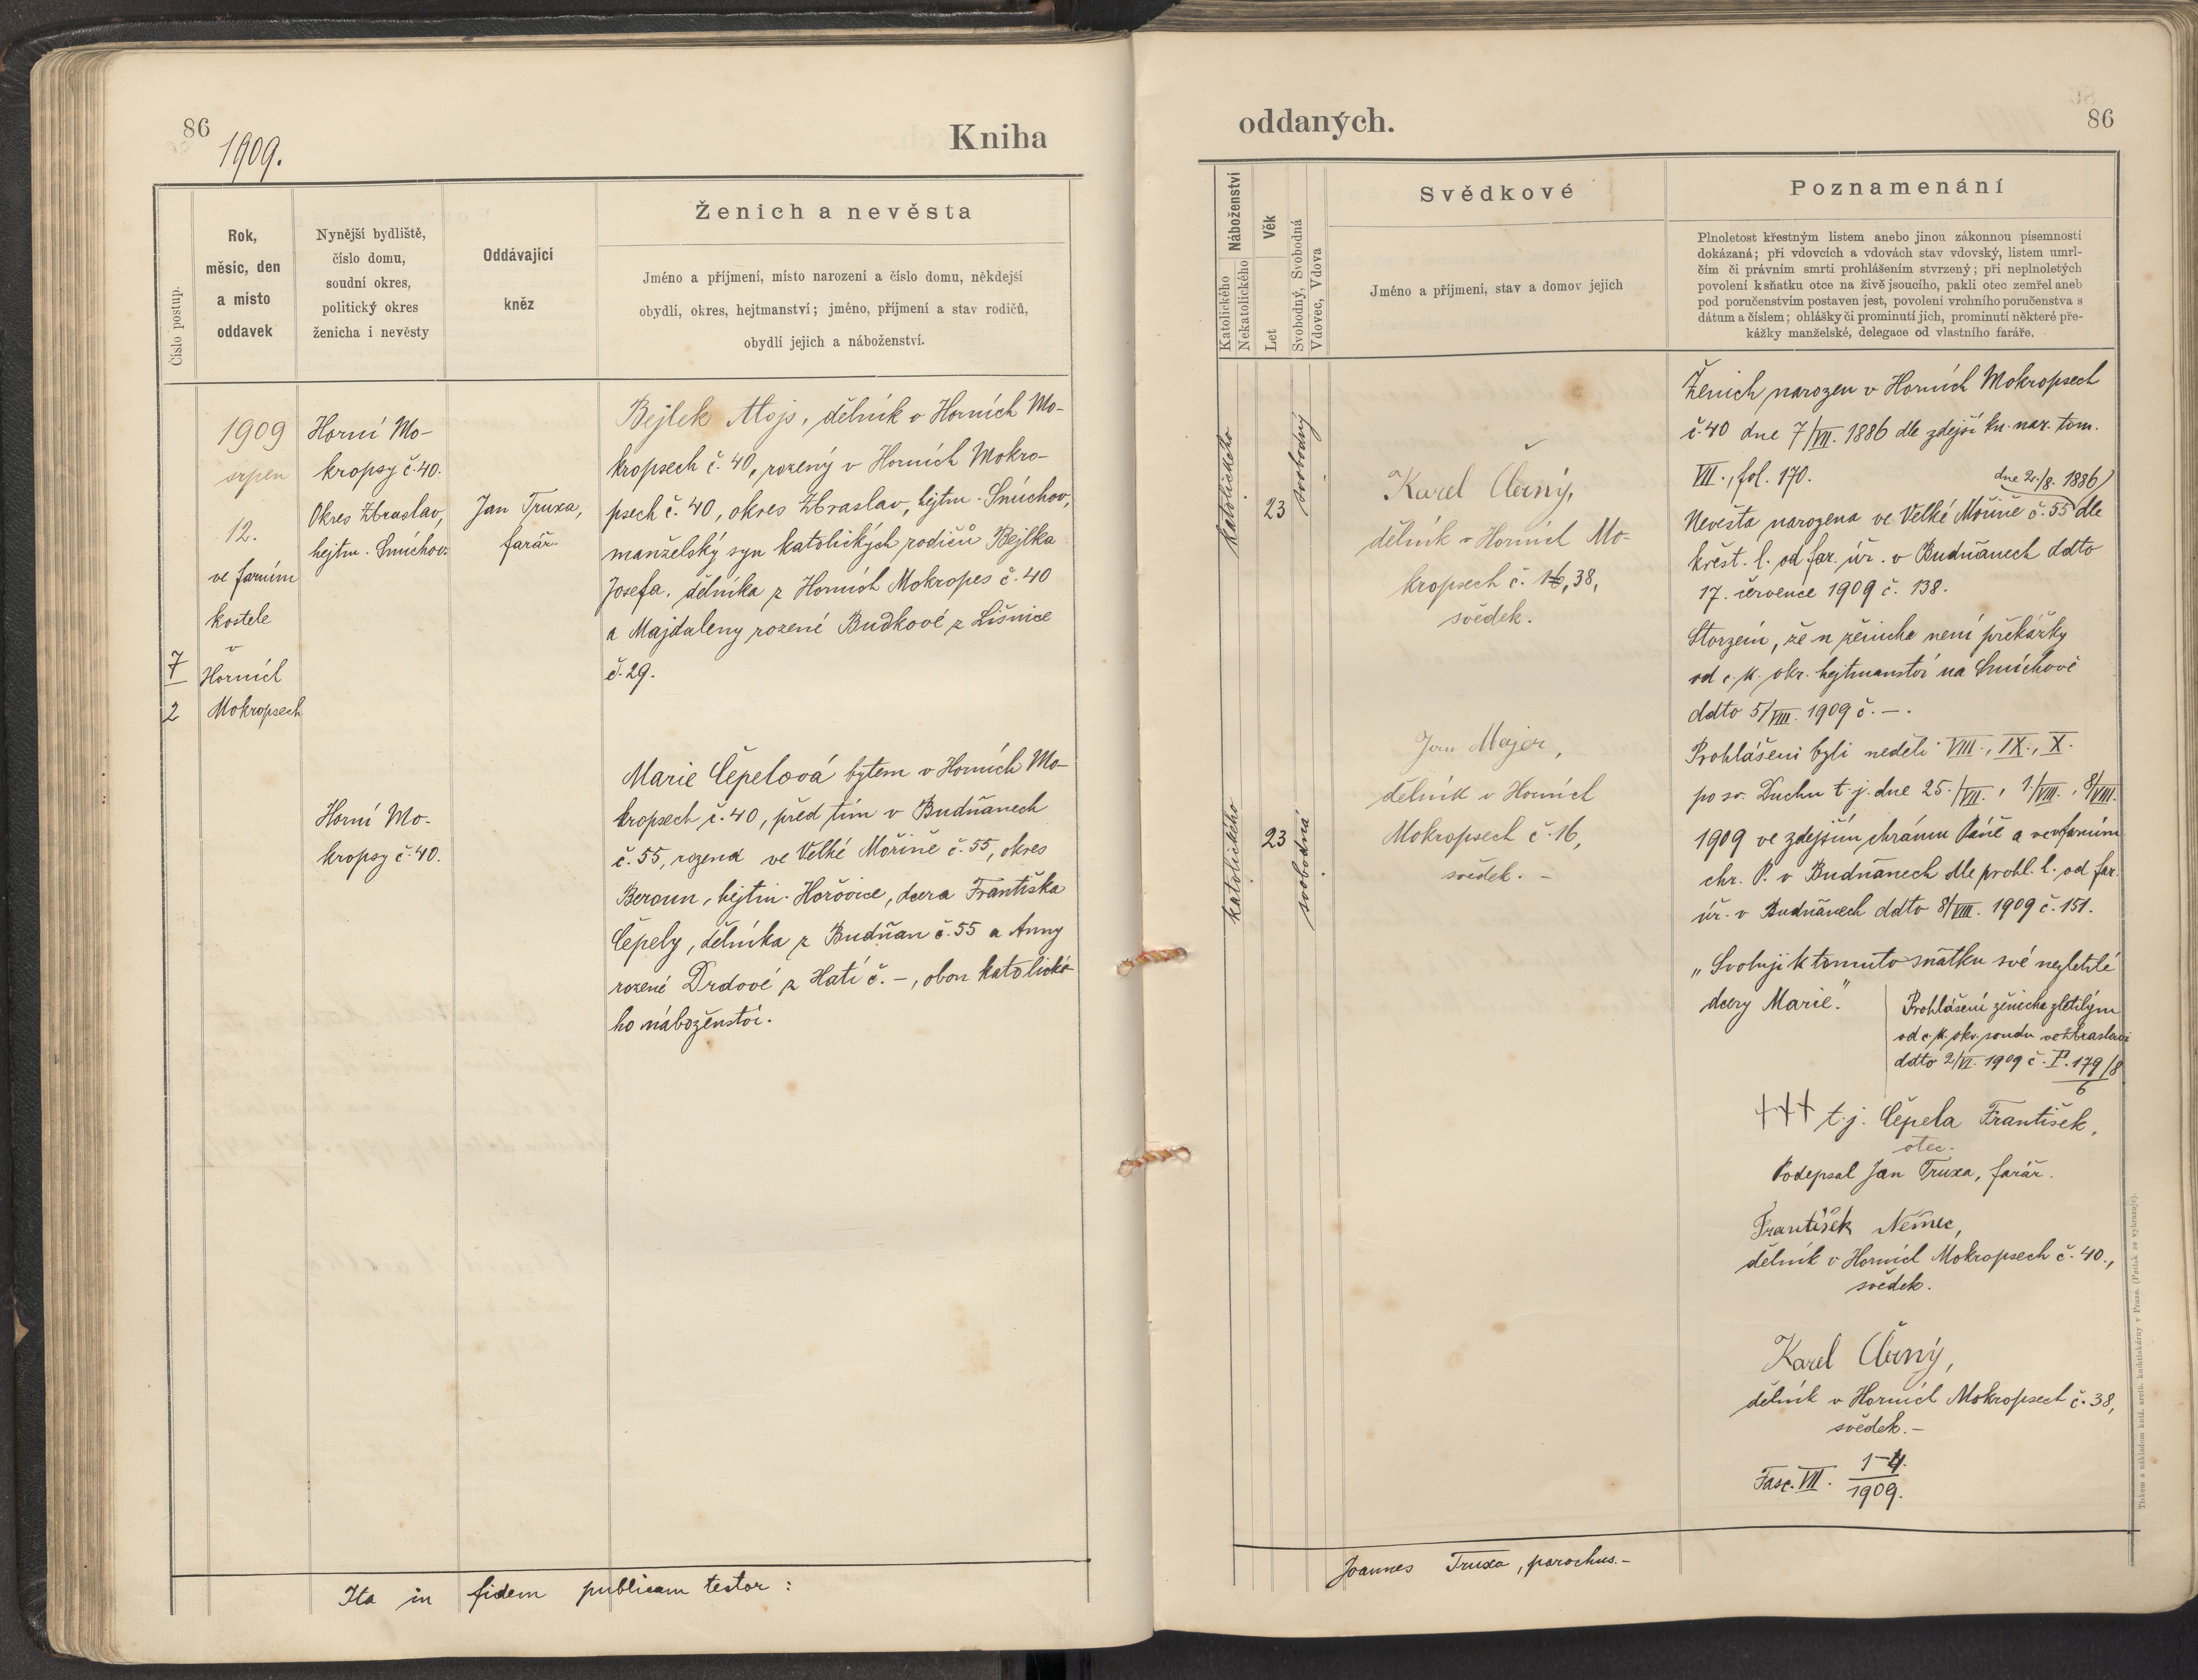 86
1909.
Kniha
Číslo postup.
Rok,
měsíc, den
a místo
oddavek
Nynější bydliště,
číslo domu,
soudní okres,
politický okres
ženicha i nevěsty
Oddávající
kněz
Ženich a nevěsta
Jméno a příjmení, místo narození a číslo domu, někdejší
obydlí, okres, hejtmanství; jméno, příjmení a stav rodičů,
obydlí jejich a náboženství.
7
2
1909
srpen
12.
ve farním
kostele
v
Horních
Mokropsech
Horní Mo-
kropsy č. 40.
Okres Zbraslav,
hejtm. Smíchov.
Horní Mo-
kropsy č. 40.
Jan Truxa,
farář.
Bejlek Alojs, dělník v Horních Mo-
kropsech č. 40, rozený v Horních Mokro-
psech č. 40, okres Zbraslav, hejtm. Smíchov,
manželský syn katolických rodičů Bejlka
Josefa, dělníka z Horních Mokropes č. 40
a Majdaleny rozené Budkové z Líšnice
č. 29.
Marie Čepelová bytem v Horních Mo-
kropsech č. 40, před tím v Budňanech
č. 55, rozená ve Velké Mořině č. 55, okres
Beroun, hejtm. Hořovice, dcera Františka
Čepely, dělníka z Budňan č. 55 a Anny
rozené Drdové z Hatí č. –, obou katolické-
ho náboženství.
Ita in fidem publicam testor:
oddaných.
86
Náboženství
Katolického
Nekatolického
Věk
Let
Svobodný, Svobodná
Vdovec, Vdova
Svědkové
Jméno a příjmení, stav a domov jejich
Poznamenání
Plnoletost křestným listem anebo jinou zákonnou písemností
dokázaná; při vdovcích a vdovách stav vdovský, listem umrl-
čím či právním smrti prohlášením stvrzený; při neplnoletých
povolení k sňatku otce na živě jsoucího, pakli otec zemřel aneb
pod poručenstvím postaven jest, povolení vrchního poručenstva s
dátum a číslem; ohlášky či prominutí jich, prominutí některé pře-
kážky manželské, delegace od vlastního faráře.
katolického
23
svobodný
katolického
23
svobodná
Karel Černý,
dělník v Horních Mo-
kropsech č. 16, 38,
svědek.
Jan Majer,
dělník v Horních
Mokropsech č. 16,
svědek. –
Ženich narozen v Horních Mokropsech
č. 40 dne 7/VII. 1886 dle zdejší kn. nar. tom.
VII., fol. 170.
dne 2./8. 1886
Nevěsta narozena ve Velké Mořině č. 55 dle
křest. l. od far. úř. v Budňanech ddto
17. července 1909 č. 138.
Stvrzení, že u ženicha není překážky
od c. k. okr. hejtmanství na Smíchově
ddto 5/VIII. 1909 č. –.
Prohlášeni byli neděli VIII., IX., X.
po sv. Duchu t. j. dne 25./VII., 1/VIII., 8/VIII.
1909 ve zdejším chrámu Páně a ve farním
chr. P. v Budňanech dle prohl. l. od far.
úř. v Budňanech ddto 8/VIII. 1909 č. 151.
„Svoluji k tomuto sňatku své nezletilé
dcery Marie."
Prohlášení ženicha zletilým
od c. k. okr. soudu ve Zbraslavi
ddto 2/VI. 1909 č. P. 179/8
6
+++ t. j. Čepela František,
otec.
Podepsal Jan Truxa, farář.
František Němec,
dělník v Horních Mokropsech č. 40.,
svědek.
Karel Černý,
dělník v Horních Mokropsech č. 38,
svědek. –
Fasc. VII. 1–4.
1909.
Joannes Truxa, parochus. –